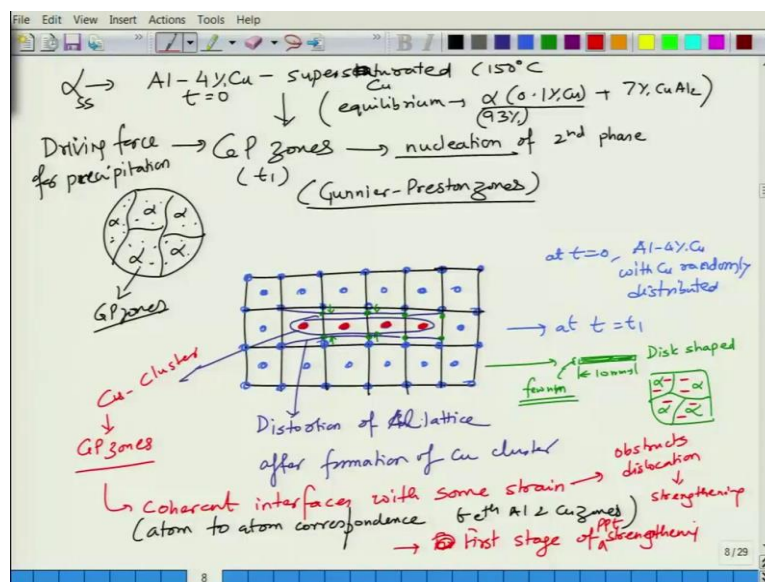 File Edit View Insert Actions Tools Help
B I
αss → Al-4%Cu - supersaturated (150°C
t=0 Cu
(equilibrium → α (0.1%Cu) + 7% CuAl2)
(93%)
Driving force for precipitation → GP zones → nucleation of 2nd phase
(t1)
(Gunnier-Preston zones)
α α α
α α
GP zones
at t=0, Al-4%Cu
with Cu randomly
distributed
→ at t=t1
Disk shaped
few nm
10nm
α α
α α
Cu-cluster
GP zones
Distortion of Al lattice
after formation of Cu cluster
obstructs
dislocation
strengthening
coherent interfaces with some strain →
(atom to atom correspondence betn Al & Cu zones)
→ First stage of ppt strengthening
8/29
8